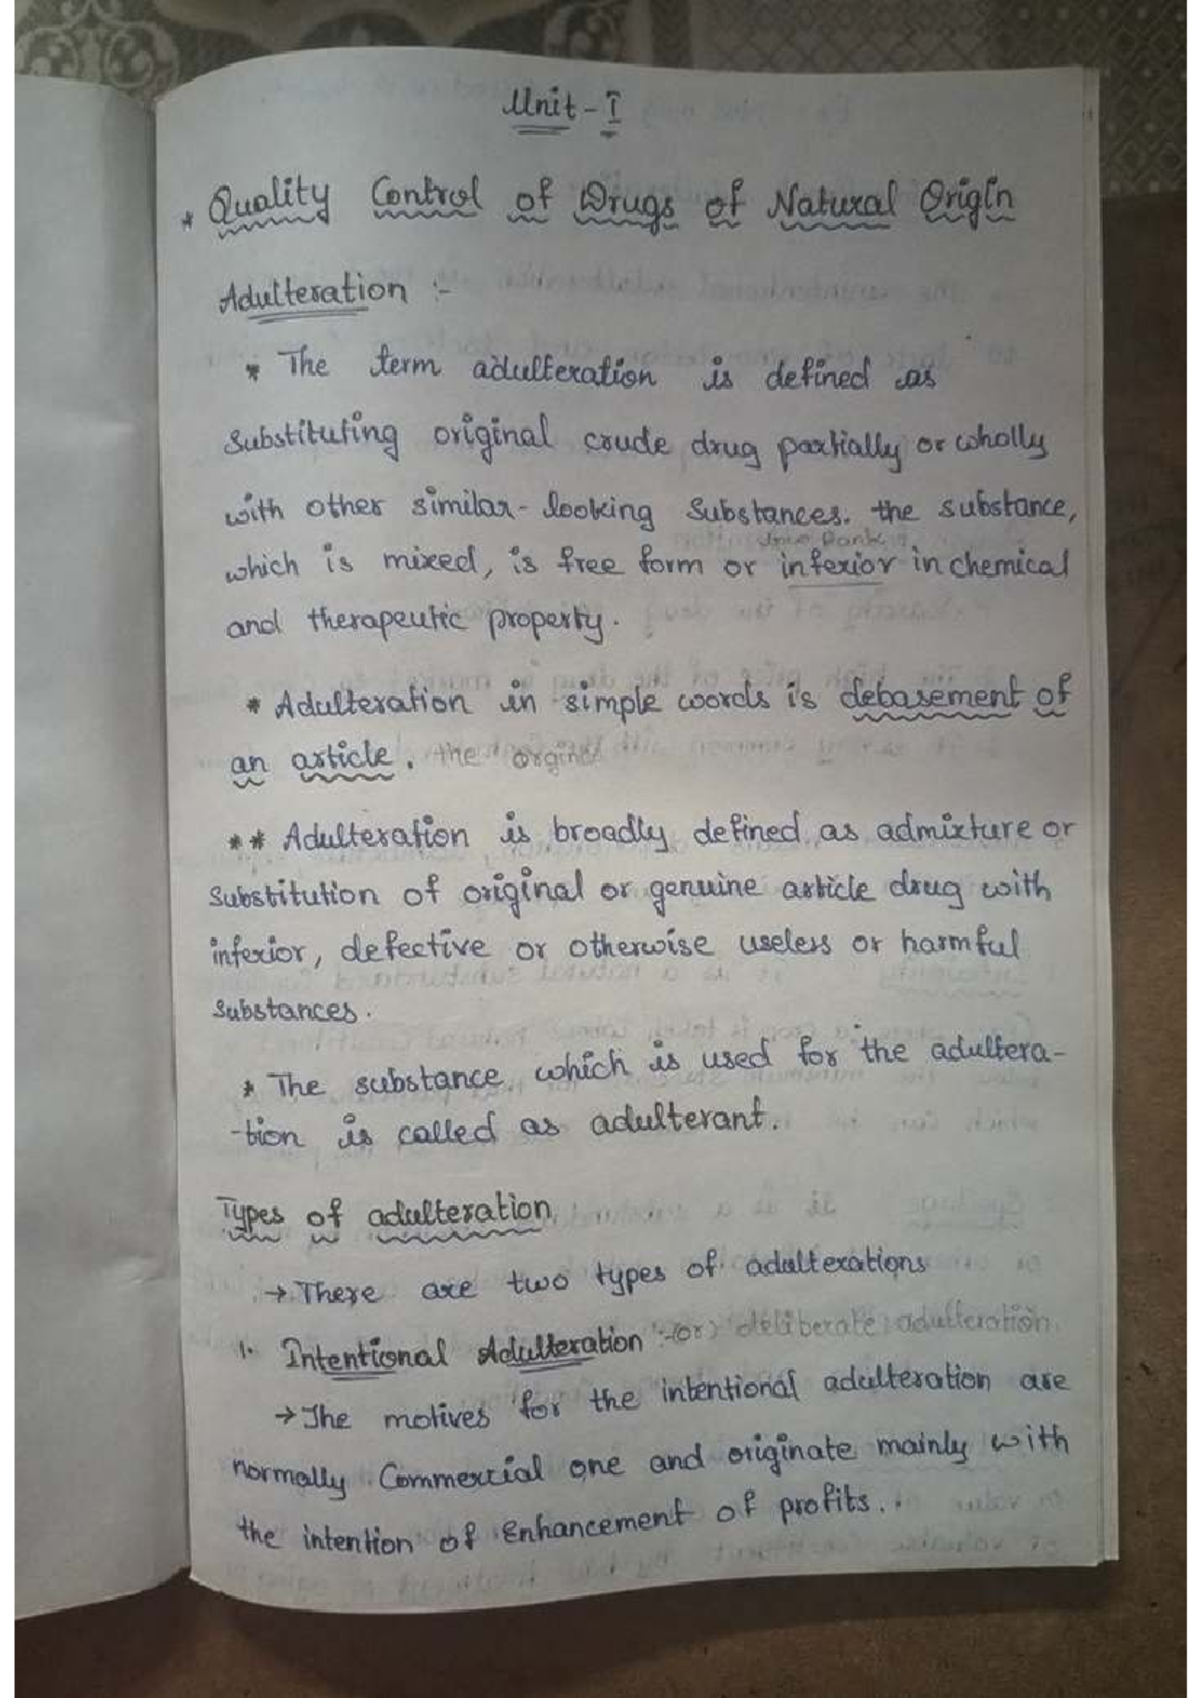 Unit - I
* Quality Control of Drugs of Natural Origin
Adulteration :-
* The term adulteration is defined as
substituting original crude drug partially or wholly
with other similar - looking substances. the substance,
which is mixed, is free form or inferior in chemical
and therapeutic property.
* Adulteration in simple words is debasement of
an article. the orginal
** Adulteration is broadly defined as admixture or
substitution of original or genuine article drug with
inferior, defective or otherwise useless or harmful
substances.
* The substance which is used for the adultera-
-tion is called as adulterant.
Types of adulteration
→ There are two types of adulterations
1. Intentional Adulteration :- (or) deliberate adulteration
→ The motives for the intentional adulteration are
normally Commercial one and originate mainly with
the intention of Enhancement of profits.